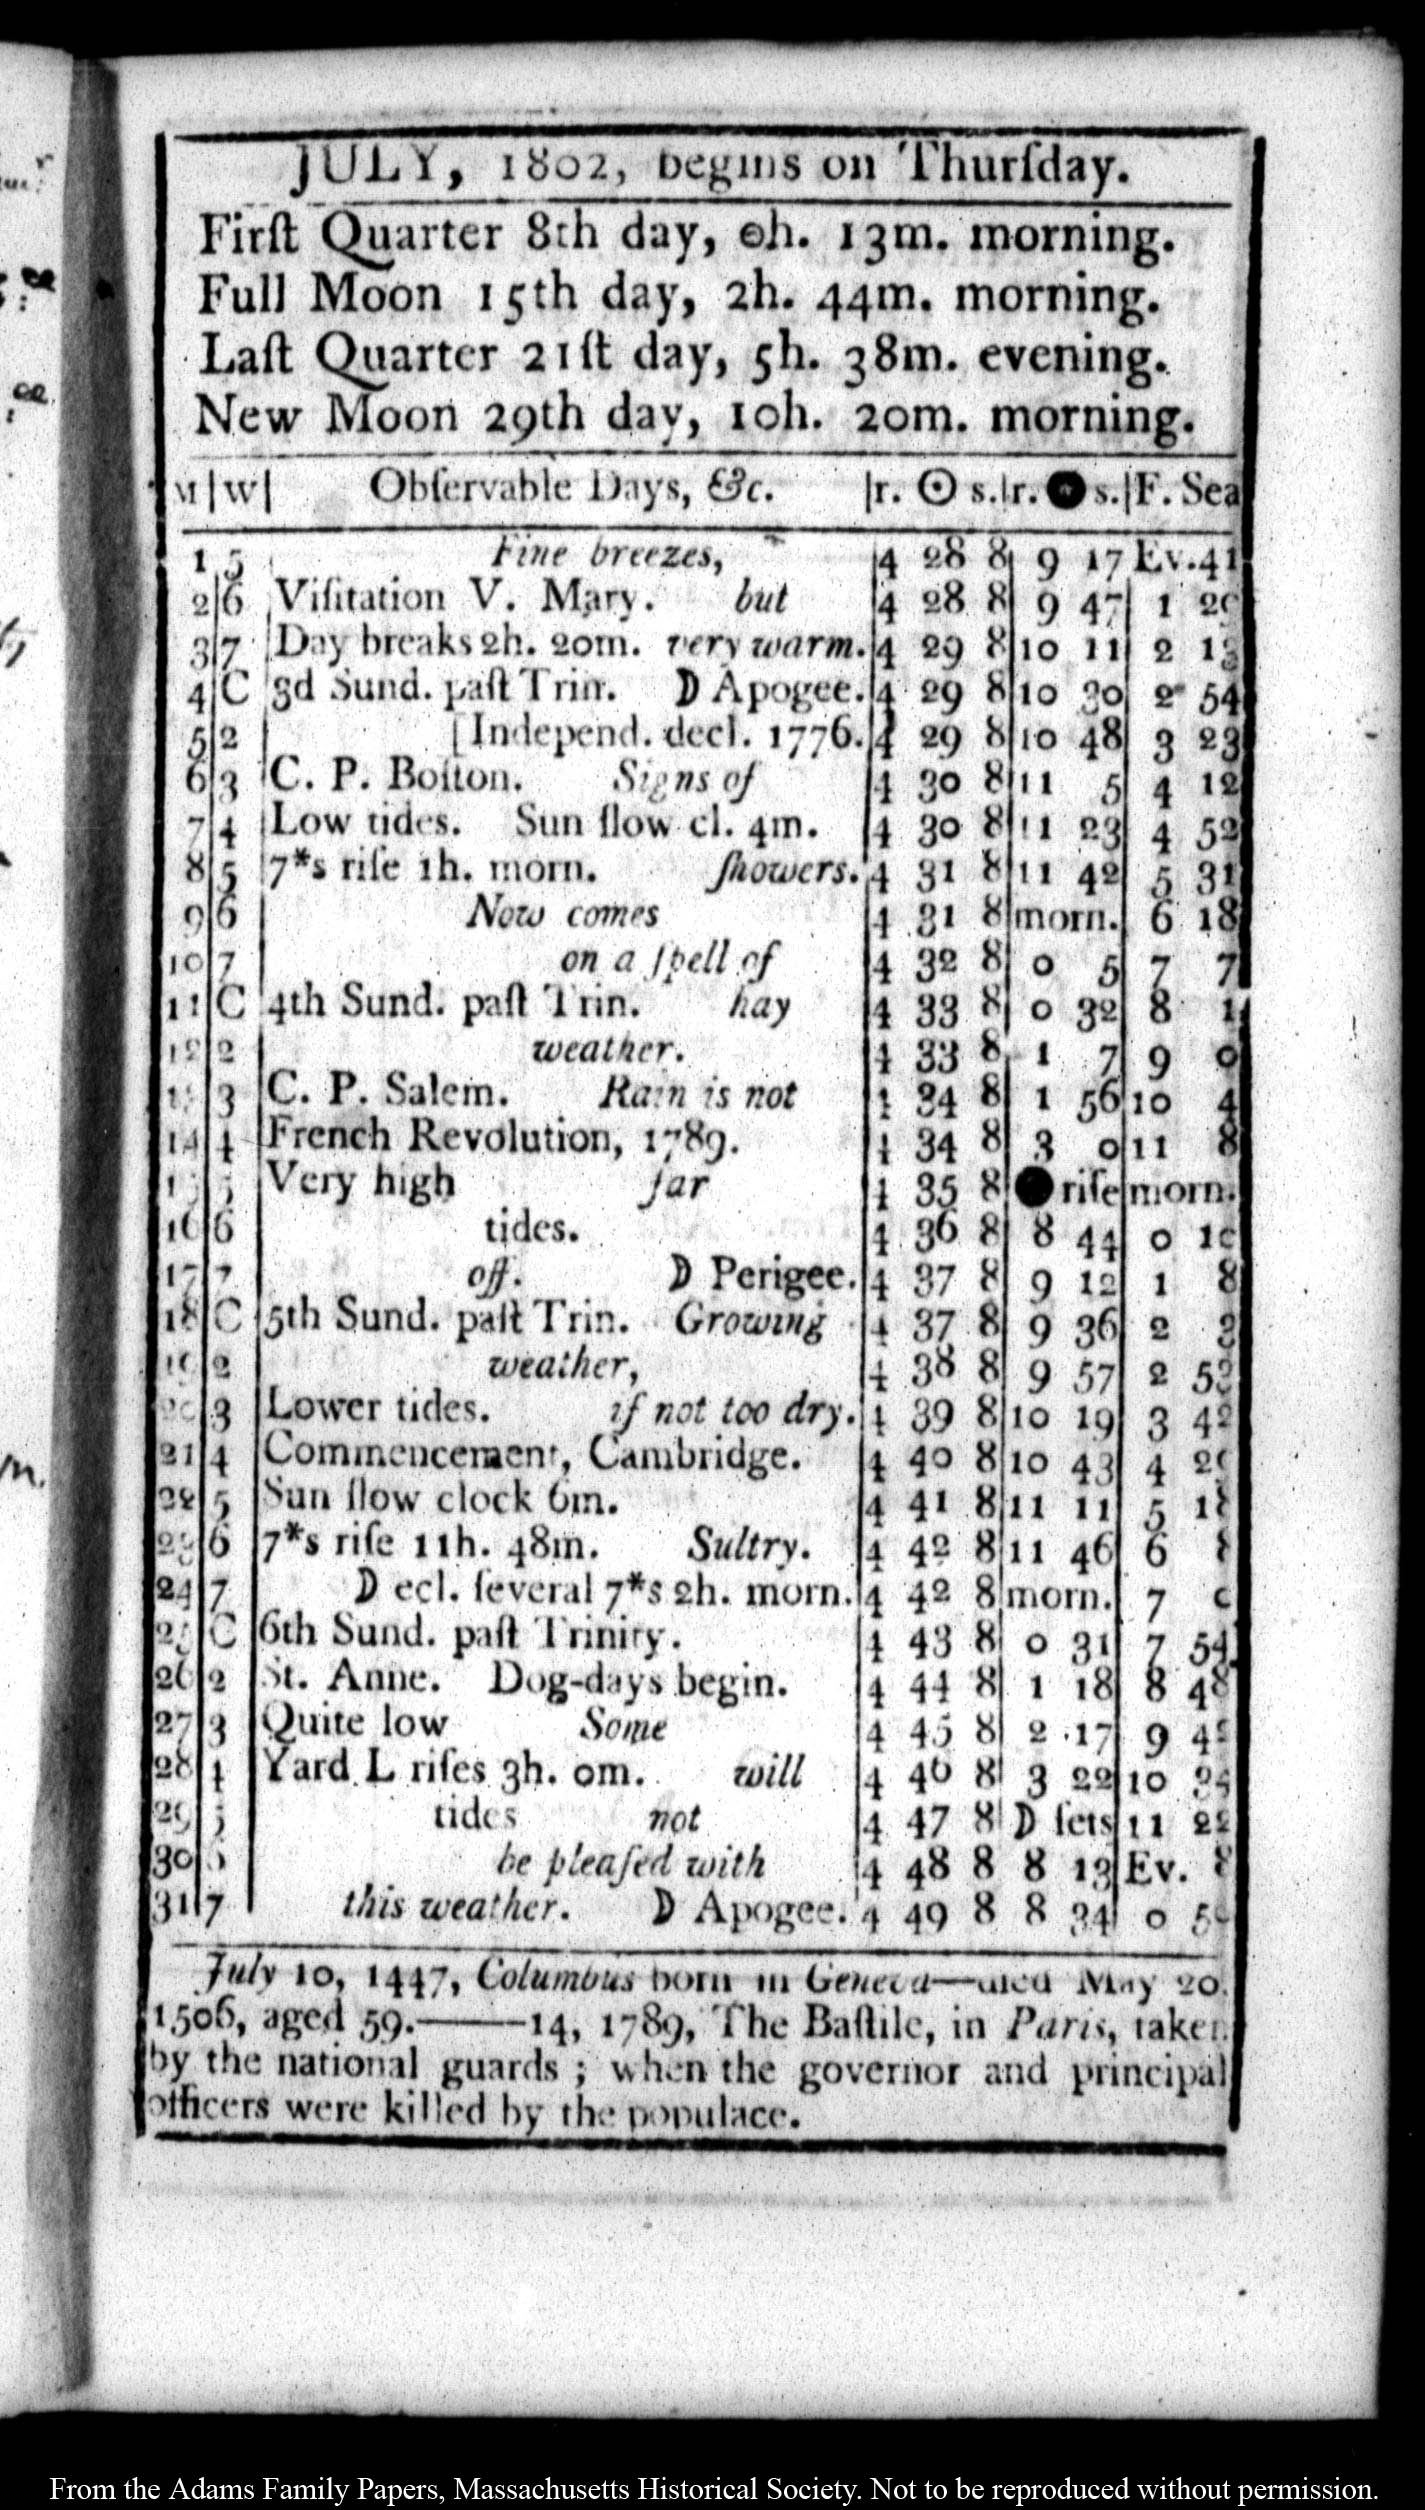 JULY, 1802, begins on Thurſday.
Firſt Quarter 8th day, 0h. 13m. morning.
Full Moon 15th day, 2h. 44m. morning.
Laſt Quarter 21ſt day, 5h. 38m. evening.
New Moon 29th day, 10h. 20m. morning.
M|W| Obſervable Days, &c. |r. ☉ s.|r. ● s.|F. Sea
1 5 Fine breezes, 4 28 8 9 17 Ev.41
2 6 Viſitation V. Mary. but 4 28 8 9 47 1
3 7 Day breaks 2h. 20m. very warm. 4 29 8 10 11 2 13
4 C 3d Sund. paſt Trin. D Apogee. 4 29 8 10 30 2 54
5 2 [Independ. decl. 1776. 4 29 8 10 48 3 23
6 3 C. P. Boſton. Signs of 4 30 8 11 5 4 12
7 4 Low tides. Sun ſlow cl. 4m. 4 30 8 11 23 4 52
8 5 7*s riſe 1h. morn. ſhowers. 4 31 8 11 42 5 31
9 6 Now comes 4 31 8 morn. 6 18
10 7 on a ſpell of 4 32 8 0 5 7 7
11 C 4th Sund. paſt Trin. hay 4 33 8 0 32 8 1
12 2 weather. 4 33 8 1 7 9 0
13 3 C. P. Salem. Rain is not 4 34 8 1 56 10 4
14 4 French Revolution, 1789. 4 34 8 3 0 11 8
15 5 Very high far 4 35 8 ● riſe morn.
16 6 tides. 4 36 8 8 44 0
17 7 off. D Perigee. 4 37 8 9 12 1 8
18 C 5th Sund. paſt Trin. Growing 4 37 8 9 36 2 3
19 2 weather, 4 38 8 9 57 2
20 3 Lower tides. if not too dry. 4 39 8 10 19 3 42
21 4 Commencement, Cambridge. 4 40 8 10 43 4
22 5 Sun ſlow clock 6m. 4 41 8 11 11 5 18
23 6 7*s riſe 11h. 48m. Sultry. 4 42 8 11 46 6
24 7 D ecl. ſeveral 7*s 2h. morn. 4 42 8 morn. 7
25 C 6th Sund. paſt Trinity. 4 43 8 0 31 7 54
26 2 St. Anne. Dog-days begin. 4 44 8 1 18 8 48
27 3 Quite low Some 4 45 8 2 17 9
28 4 Yard L riſes 3h. 0m. will 4 46 8 3 22 10
29 5 tides not 4 47 8 D ſets 11 22
30 6 be pleaſed with 4 48 8 8 13 Ev.
31 7 this weather. D Apogee. 4 49 8 8 34 0
July 10, 1447, Columbus born in Geneva—died May 20,
1506, aged 59.——14, 1789, The Baſtile, in Paris, taken
by the national guards ; when the governor and principal
officers were killed by the populace.
From the Adams Family Papers, Massachusetts Historical Society. Not to be reproduced without permission.